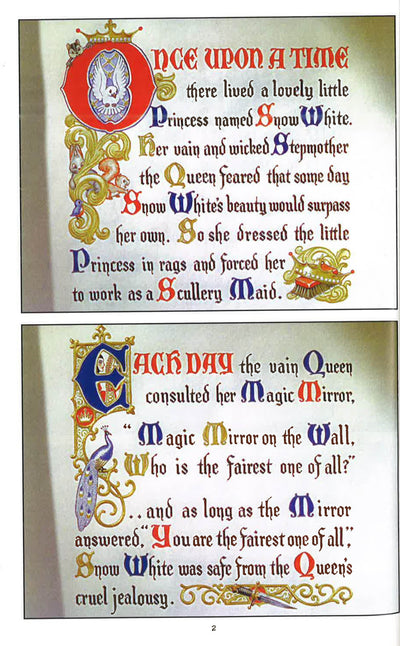 ONCE UPON A TIME
there lived a lovely little
Princess named Snow White.
Her vain and wicked Stepmother
the Queen feared that some day
Snow White's beauty would surpass
her own. So she dressed the little
Princess in rags and forced her
to work as a Scullery Maid.
EACH DAY the vain Queen
consulted her Magic Mirror,
"Magic Mirror on the Wall,
Who is the fairest one of all?"
..and as long as the Mirror
answered, "You are the fairest one of all",
Snow White was safe from the Queen's
cruel jealousy.
2